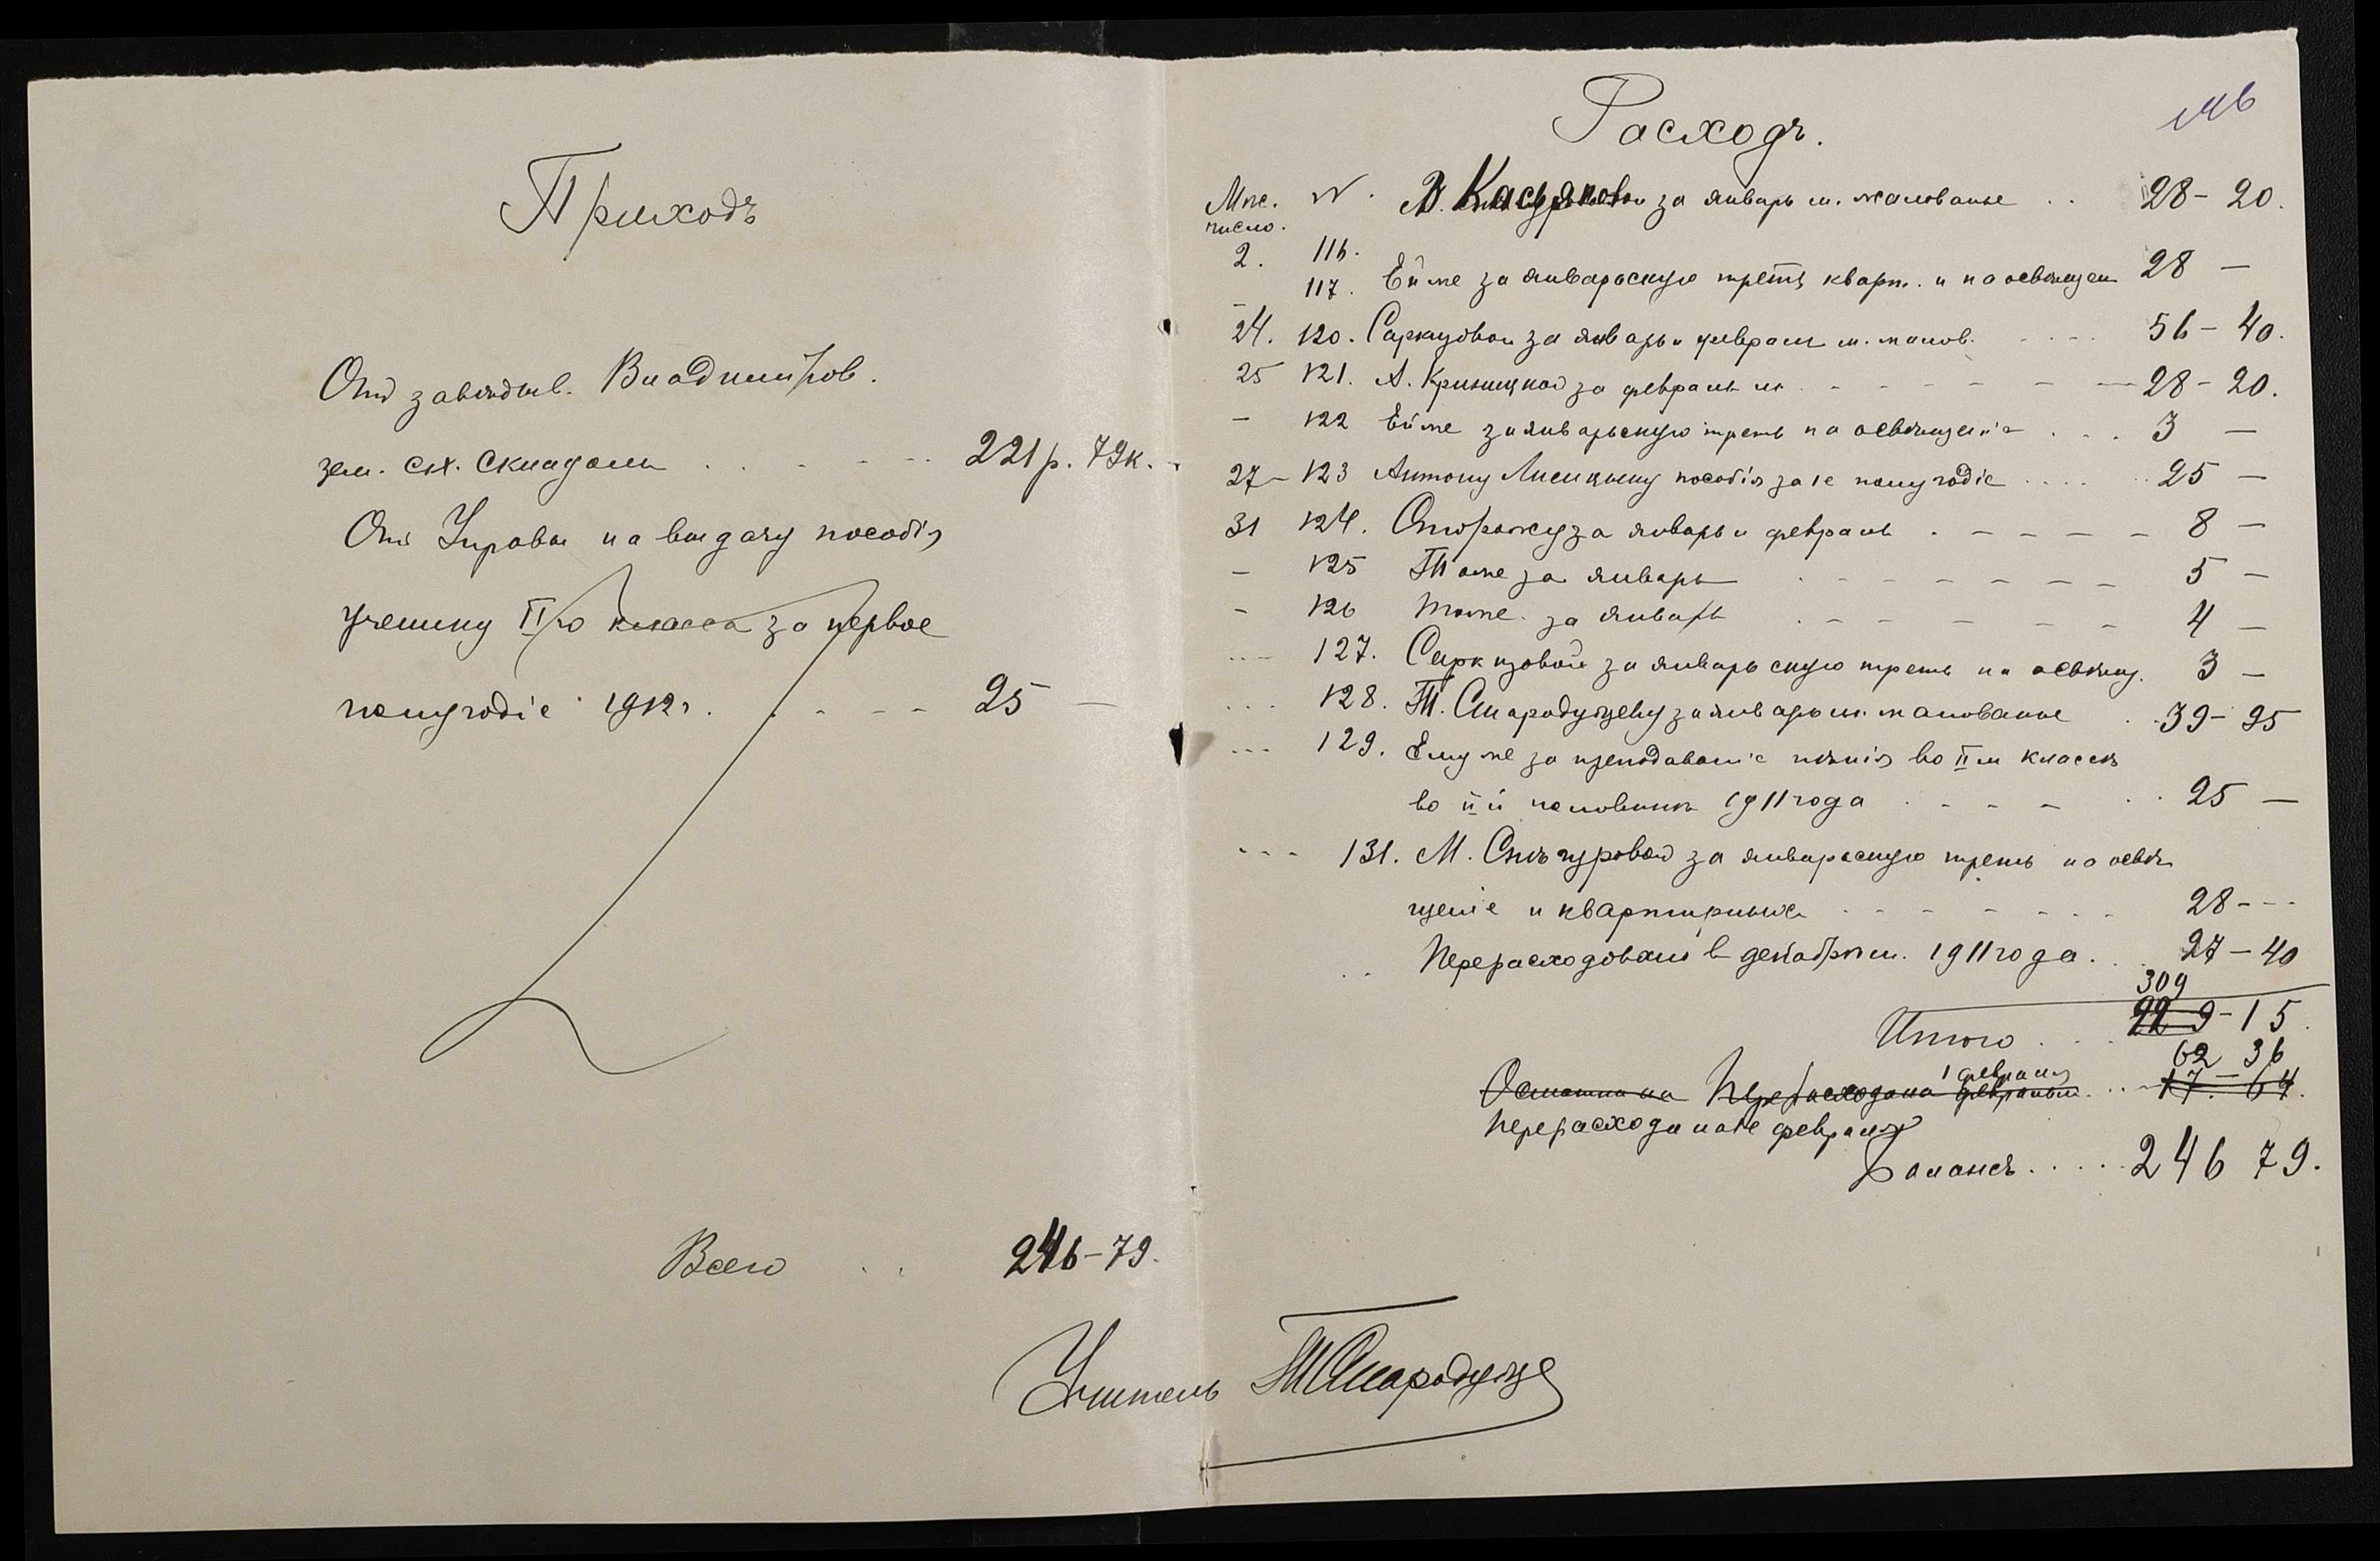 Приходъ
Отъ завѣдыв. Владимиров.
зем. с.х. складомъ 221 р. 79 к.
Отъ Управы на выдачу пособія
ученику II го класса за первое
полугодіе 1912 г. 25 —
Всего 246 - 79.
Учитель
Расходъ.
Мѣс. число. № . за январь м. жалованье . . 28 - 20.
2. 116.
— 117. Ей же за январьскую треть кварт. и на освѣщен 28 —
24. 120. Саркизовой за январь и февраль м. жалов. 56 - 40.
25 121. А. Криницкой за февраль м. 28 - 20.
— 122 Ей же за январьскую треть на освѣщеніе . . . 3 —
27 - 123 Антону Лисицыну пособія за 1е полугодіе 25 —
31 124. Сторожу за январь и февраль 8 —
— 125 Тоже за январь 5 —
- 126 тоже за январь 4 —
127. Саркизовой за январьскую треть на освѣщ. 3 —
128. Т. Стародубцеву за январь м. жалованье 39 - 95
129. Ему же за преподаваніе пѣнія во II м классѣ
во II й половинѣ 1911 года 25 —
131. М. за январьскую треть на освѣ
щеніе и квартирныхъ 28 - - -
Перерасходовано въ декабрѣ м. 1911 года. 27 - 40
309
Итого 229 - 15.
62 36
1 февраля
Остатка на Перерасхода на февраль м. 17 - 64.
перерасхода на 1е февраля
Балансъ 246 79.